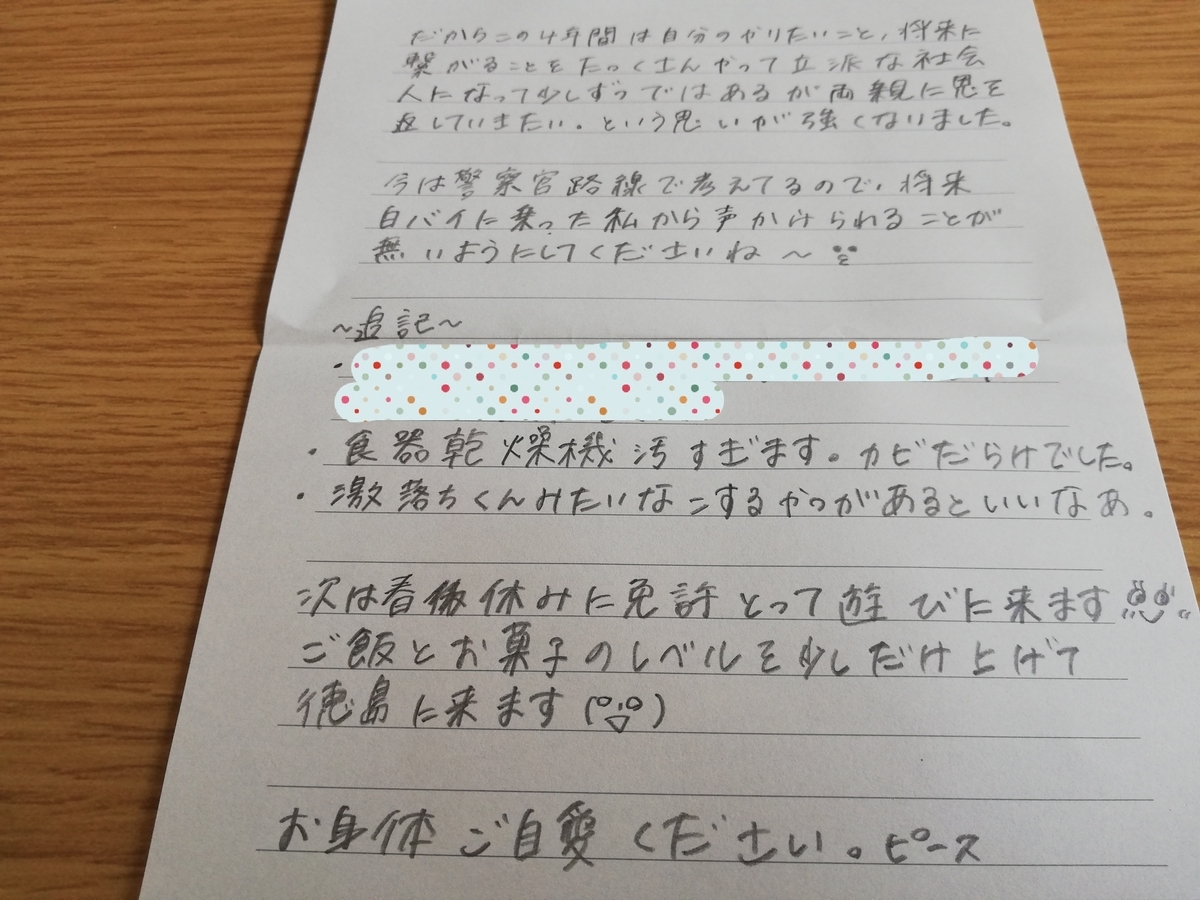 だからこの4年間は自分のやりたいこと、将来に
繋がることをたっくさんやって立派な社会
人になって少しずつではあるが両親に恩を
返していきたい。という思いが強くなりました。
今は警察官路線で考えてるので、将来
白バイに乗った私から声かけられることが
無いようにしてくださいね〜
〜追記〜
・
・食器乾燥機汚すぎます。カビだらけでした。
・激落ちくんみたいなこするやつがあるといいなぁ。
次は春休みに免許とって遊びに来ます
ご飯とお菓子のレベルを少しだけ上げて
徳島に来ます
お身体ご自愛ください。ピース